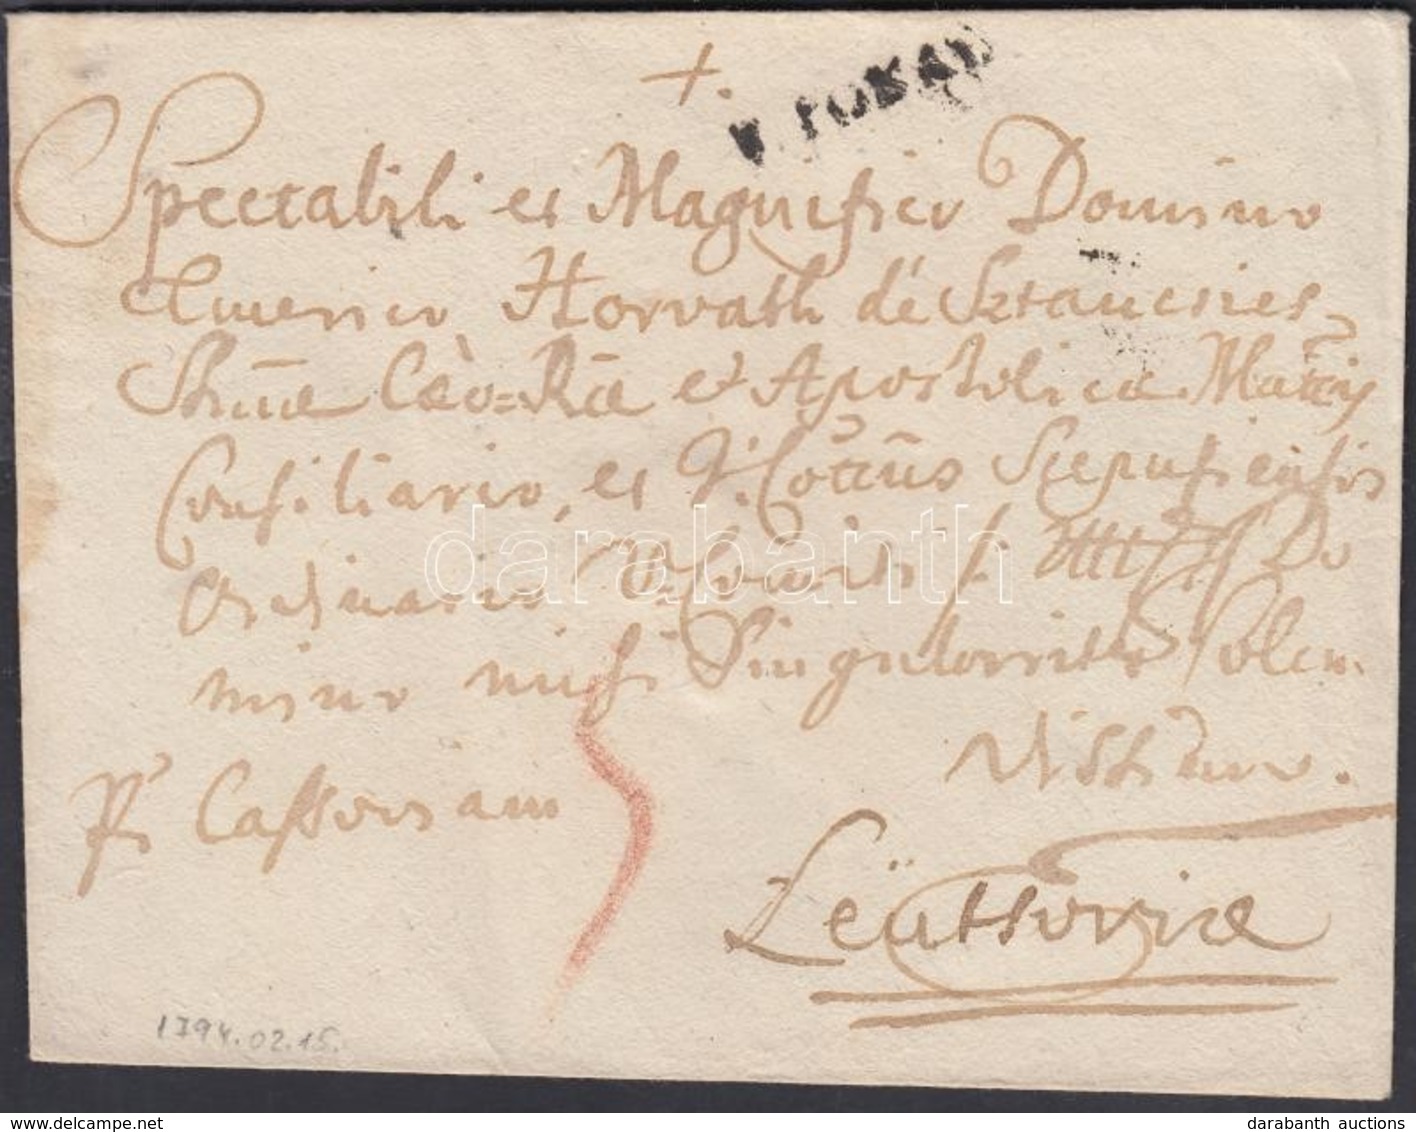 +.
V. TOKAY
Spectabili et Magnifico Domino
Emerico Horvath de Sztancsics
Caeo=Rae et Apostolicae
Consiliario, et I. Cottus Scepusiensis
Ordinario V=Comiti Do
mino mihi Singulariter Colen
dissimo.
pr Cassoviam
Leütsoviae
1794.02.15.
darabanth
delcampe.net
darabanth auctions